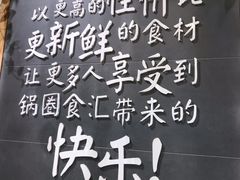 以更高的性价比
更新鲜的食材
让更多人享受到
锅圈食汇带来的
快乐!